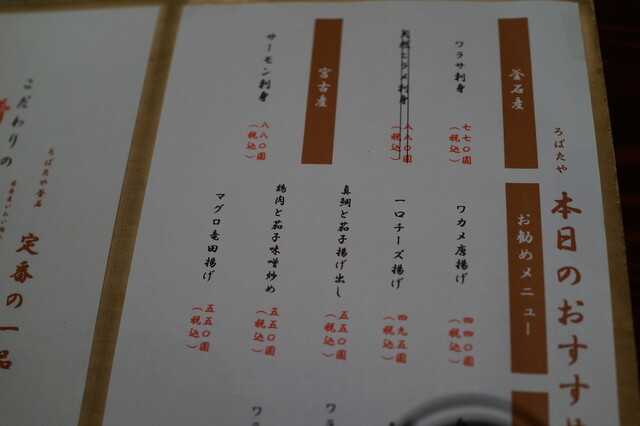 ろばたや
本日のおすすめ
釜石産
ワラサ刺身
七七〇圓
(税込)
天然ヒラメ刺身
八八〇圓
(税込)
宮古産
サーモン刺身
八八〇圓
(税込)
お勧めメニュー
ワカメ唐揚げ
四四〇圓
(税込)
一口チーズ揚げ
四九五圓
(税込)
真鯛と茄子揚げ出し
五五〇圓
(税込)
鶏肉と茄子味噌炒め
五五〇圓
(税込)
マグロ竜田揚げ
五五〇圓
(税込)
ワラ
ワラ
こだわりの
ろばたや釜石
定番の一品